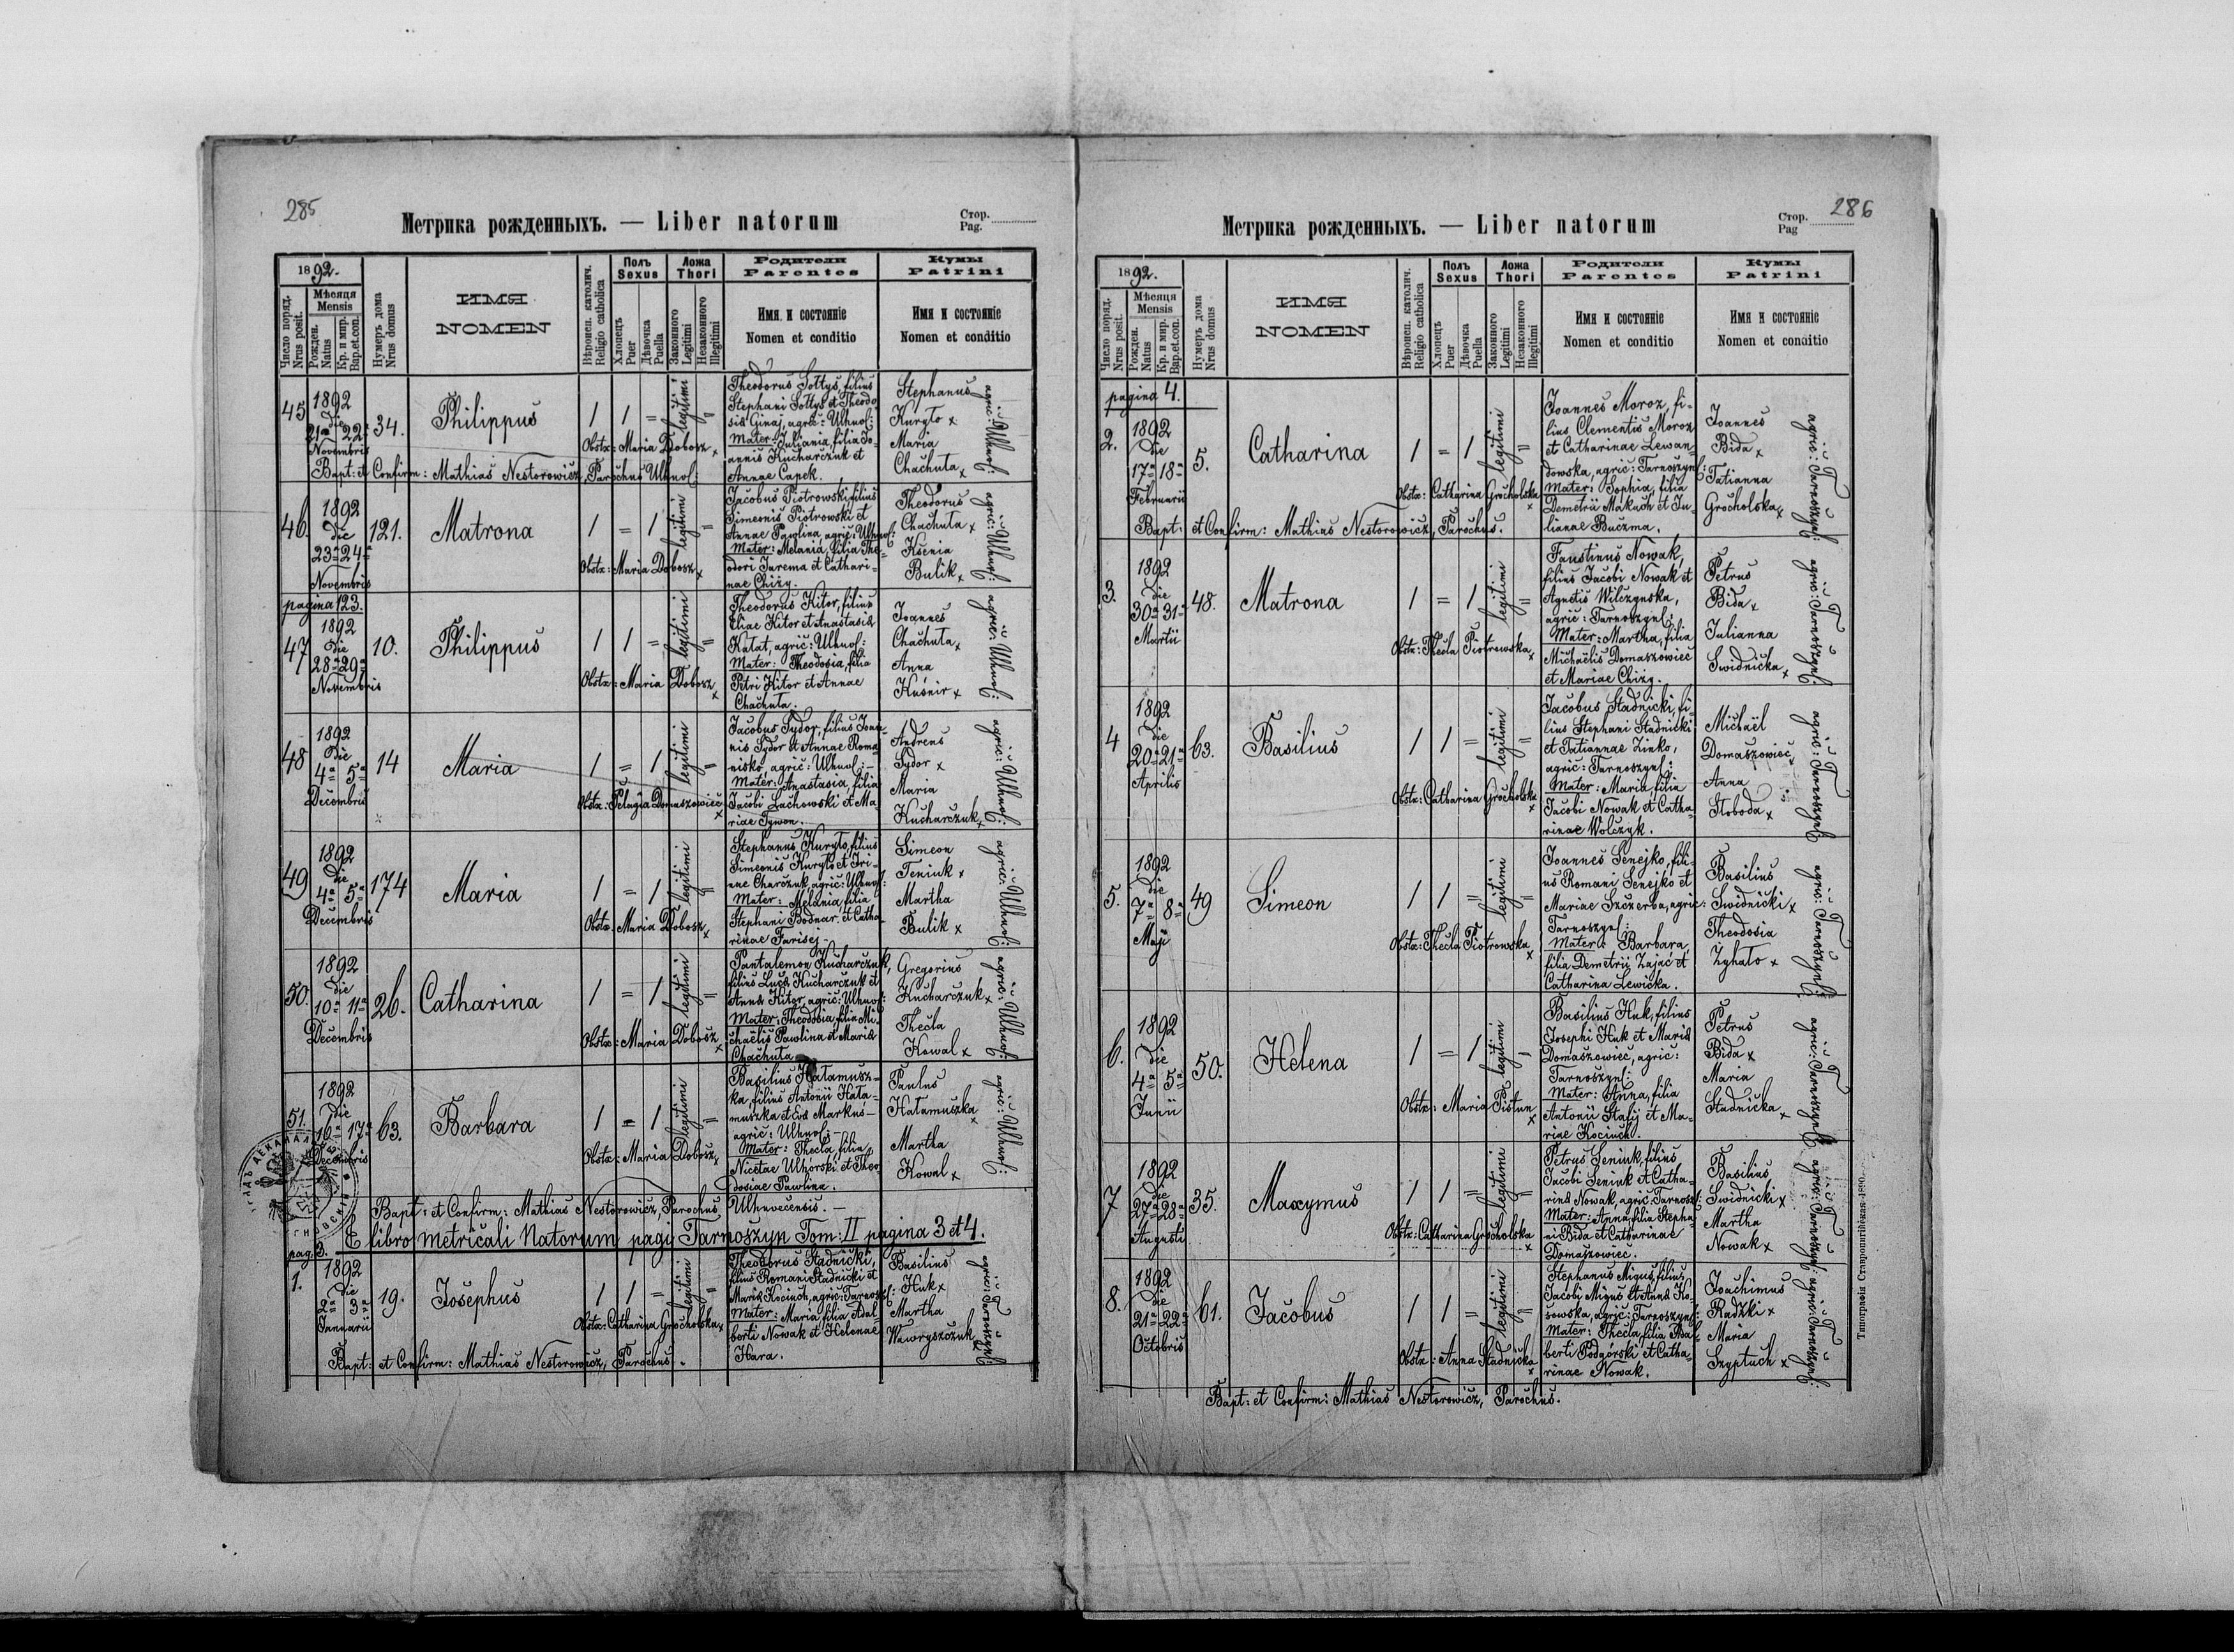 285
Метрика рожденныхъ. — Liber natorum
Стор.
Pag.
1892.
Число поряд.
Nrus posit.
Мѣсяця
Mensis
Рожден.
Natus
Кр. и мир.
Bap.et.con.
Нумеръ дома
Nrus domus
ИМЯ
NOMEN
Вѣроисп. католич.
Religio catholica
Полъ
Sexus
Хлопець
Puer
Дѣвочка
Puella
Ложа
Thori
Законного
Legitimi
Незаконного
Illegitimi
Родители
Parentes
Имя и состоянiе
Nomen et conditio
Кумы
Patrini
Имя и состоянiе
Nomen et conditio
45
1892
die
21ª 22ª
Novembris
34.
Philippus
1 1 = legitimi =
Obstx: Maria Dobosz x
Theodorus Sołtys, filius
Stephani Sołtys et Theodo
siæ Ginaj, agric: Uhnov:
Mater: Juliania, filia Jo-
annis Kucharczuk et
Annae Capek.
Stephanus
Kuryło x
Maria
Chachuta x
agric: Uhnov:
Bapt: et Confirm: Mathias Nestorowicz, Parochus Uhnov:
46.
1892
die
23ª 24ª
Novembris
121.
Matrona
1 = 1 legitimi =
Obstx: Maria Dobosz x
Jacobus Piotrowski, filius
Simeonis Piotrowski et
Annae Pawlina, agric: Uhnov:
Mater: Melania, filia The-
odori Jarema et Cathari-
nae Chizy.
Theodorus
Chachuta x
Ksenia
Bulik x
agric: Uhnov:
pagina 123.
47
1892
die
28ª 29ª
Novembris
10.
Philippus
1 1 = legitimi =
Obstx: Maria Dobosz x
Theodorus Kitor, filius
Eliae Kitor et Anastasiæ
Katat, agric: Uhnov:
Mater: Theodosia, filia
Petri Kitor et Annae
Chachuta.
Joannes
Chachuta x
Anna
Kuśnir x
agric: Uhnov:
48
1892
Die
4ª 5ª
Decembris
14
Maria
1 = 1 legitimi =
Obstx: Pelagia Domaszowiec x
Jacobus Sydor, filius Joan-
nis Sydor et Annae Roma
nisko, agric: Uhnov: —
Mater: Anastasia, filia
Jacobi Lachowski et Ma
riae Tywon.
Andreas
Sydor x
Maria
Kucharczuk x
agric: Uhnov:
49
1892
die
4ª 5ª
Decembris
174
Maria
1 = 1 legitimi =
Obstx. Maria Dobosz x
Stephanus Kuryło, filius
Simeonis Kuryło et Iri-
nae Charczuk, agric: Uhnov:
Mater: Melania, filia
Stephani Bodnar et Catha-
rinae Farisej.
Simeon
Teniuk x
Martha
Bulik x
agric: Uhnov:
50.
1892
die
10ª 11ª
Decembris
26.
Catharina
1 = 1 legitimi =
Obstx: Maria Dobosz x
Pantalemon Kucharczuk,
filius Lucæ Kucharczuk et
Annæ Kitor, agric: Uhnov:
Mater: Theodosia, filia Mi-
chaëlis Pawlina et Mariæ
Chachuta
Gregorius
Kucharczuk x
Thecla
Kowal x
agric: Uhnov:
51.
1892
die
16ª 17ª
Decembris
63.
Barbara
1 = 1 legitimi =
Obstx: Maria Dobosz x
Basilius Hałamusz-
ka, filius Antonii Hała-
muszka et Evæ Markus —
agric: Uhnov: —
Mater: Thecla, filia
Nicetae Uhorski et Theo
dosiae Pawlina.
Paulus
Hałamuszka x
Martha
Kowal x
agric: Uhnov:
Bapt: et Confirm: Mathias Nestorowicz, Parochus Uhnovecensis. —
E libro metricali Natorum pagi Tarnoszyn Tom: II pagina 3 et 4.
pag: 3.
1.
1892
die
2ª 3ª
Januarii
19.
Josephus
1 1 = legitimi =
Obstx: Catharina Grocholska x
Theodorus Stadnicki,
filius Romani Stadnicki et
Mariæ Kociuch, agric: Tarnosz:
Mater: Maria, filia Adal-
berti Nowak et Helenae
Hara.
Basilius
Huk x
Martha
Wawryszczuk x
agric: Tarnoszyn:
Bapt: et Confirm: Mathias Nestorowicz, Parochus.
286
Метрика рожденныхъ. — Liber natorum
Стор.
Pag
1892.
Число поряд.
Nrus posit.
Мѣсяця
Mensis
Рожден.
Natus
Кр. и мир.
Bap.et.con.
Нумеръ дома
Nrus domus
ИМЯ
NOMEN
Вѣроисп. католич.
Religio catholica
Полъ
Sexus
Хлопець
Puer
Дѣвочка
Puella
Ложа
Thori
Законного
Legitimi
Незаконного
Illegitimi
Родители
Parentes
Имя и состоянiе
Nomen et conditio
Кумы
Patrini
Имя и состоянiе
Nomen et conditio
pagina 4.
2.
1892
die
17ª 18ª
Februarii
5.
Catharina
1 = 1 legitimi =
Obstx: Catharina Grocholska x
Joannes Moroz, fi-
lius Clementis Moroz
et Catharinae Lewan-
dowska, agric: Tarnoszyn:
Mater: Sophia, filia
Demetrii Makuch et Ju-
lianae Buczma.
Joannes
Bida x
Tatianna
Grocholska x
agric: Tarnoszyn:
Bapt: et Confirm: Mathias Nestorowicz, Parochus.
3.
1892
die
30ª 31ª
Martii
48.
Matrona
1 = 1 legitimi =
Obstx: Thecla Piotrowska x
Faustinus Nowak,
filius Jacobi Nowak et
Agnetis Wilczynska,
agric: Tarnoszyn:
Mater: Martha, filia
Michaëlis Domaszowiec
et Mariae Chizy.
Petrus
Bida x
Julianna
Swidnicka x
agric: Tarnoszyn:
4
1892
die
20ª 21ª
Aprilis
63.
Basilius
1 1 = legitimi =
Obstx: Catharina Grocholska x
Jacobus Stadnicki, fi-
lius Stephani Stadnicki
et Tatiannae Zinko,
agric: Tarnoszyn:
Mater: Maria, filia
Jacobi Nowak et Catha-
rinae Wolczyk.
Michaël
Domaszowiec x
Anna
Słoboda x
agric: Tarnoszyn:
5.
1892
die
7ª 8ª
Maji
49
Simeon
1 1 = legitimi =
Obstx: Thecla Piotrowska x
Joannes Senejko, fili-
us Romani Senejko et
Mariae Szczerba, agric:
Tarnoszyn:
Mater: Barbara,
filia Demetrii Zając et
Catharina Lewicka.
Basilius
Swidnicki x
Theodosia
Żyhało x
agric: Tarnoszyn:
6.
1892
die
4ª 5ª
Junii
50.
Helena
1 = 1 legitimi =
Obstx: Maria Pistun x
Basilius Huk, filius
Josephi Huk et Mariæ
Domaszowiec, agric:
Tarnoszyn:
Mater: Anna, filia
Antonii Stafij et Ma-
riae Kociuch.
Petrus
Bida x
Maria
Stadnicka x
agric: Tarnoszyn:
7
1892
die
27ª 28ª
Augusti
35.
Maxymus
1 1 = legitimi =
Obstx: Catharina Grocholska x
Petrus Seniuk, filius
Jacobi Seniuk et Catha-
rinæ Nowak, agric: Tarnosz:
Mater: Anna, filia Stepha-
ni Bida et Catharinae
Domaszowiec.
Basilius
Swidnicki x
Martha
Nowak x
agric: Tarnoszyn:
8.
1892
die
21ª 22ª
Octobris
61.
Jacobus
1 1 = legitimi =
Obstx: Anna Stadnicka x
Stephanus Migus, filius
Jacobi Migus et Annæ Ko-
sowska, agric: Tarnoszyn:
Mater: Thecla, filia Adal-
berti Podgórski et Catha-
rinae Nowak.
Joachimus
Radzki x
Maria
Szyptuch x
agric: Tarnoszyn:
Bapt: et Confirm: Mathias Nestorowicz, Parochus.
Типографiя Ставропигiйская 1890.